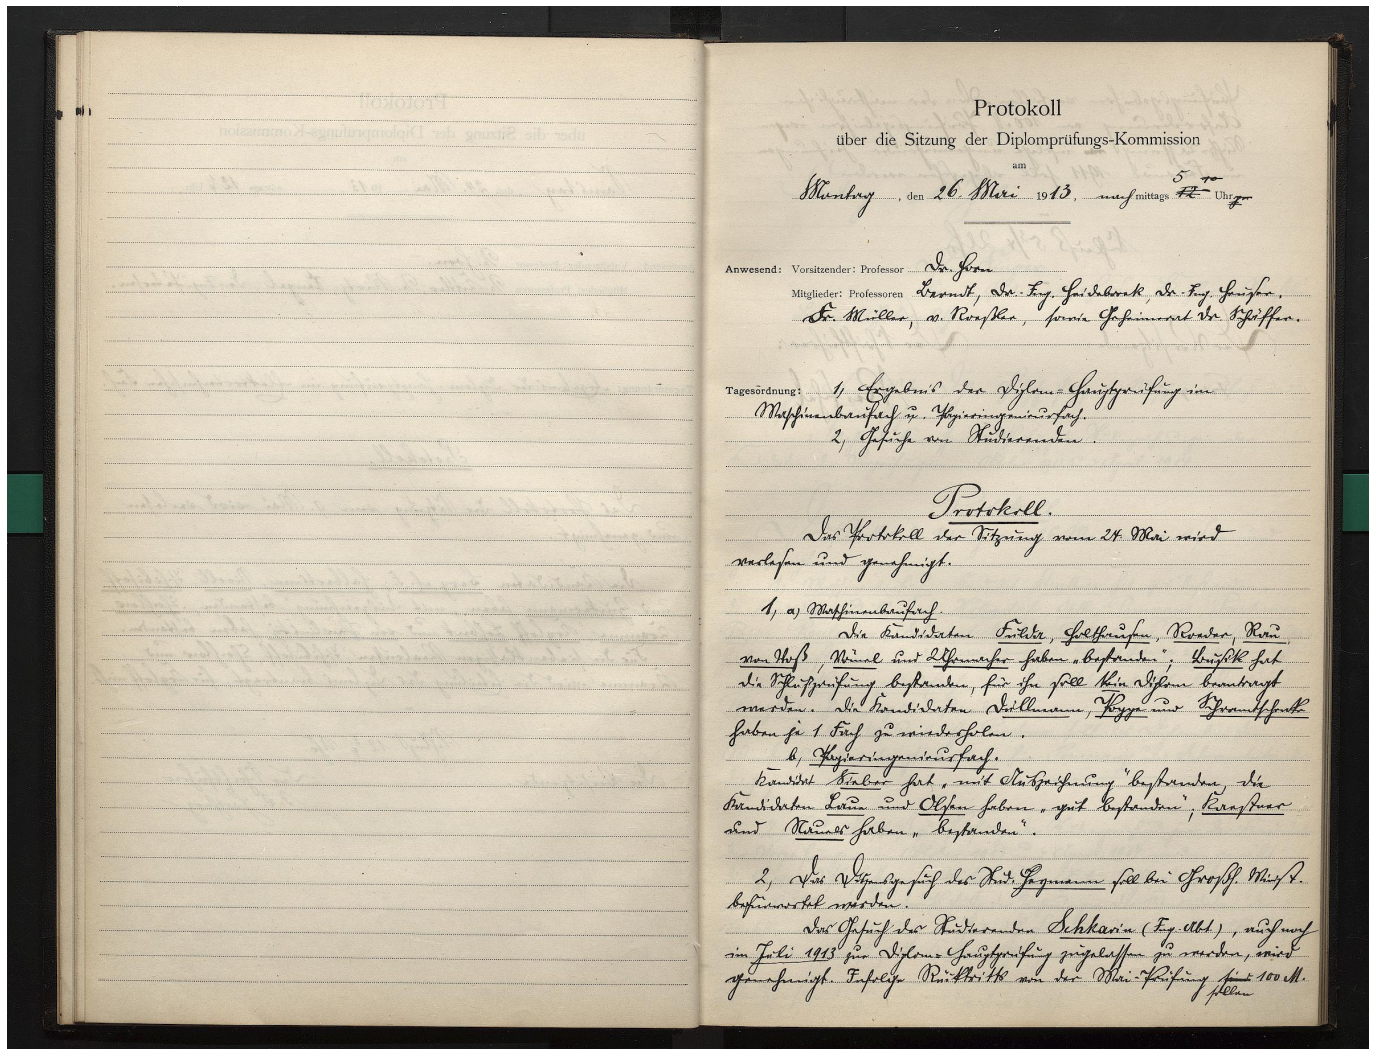 Protokoll
über die Sitzung der Diplomprüfungs-Kommission
am
Montag, den 26. Mai 1913, nachmittags 5 10 Uhr
Anwesend: Vorsitzender: Professor Dr. Horn
Mitglieder: Professoren Berndt, Dr.-Ing. Heidebroek, Dr.-Ing. Heuser,
Fr. Müller, v. Roeßler, sowie Geheimerat Dr. Schäffer.
Tagesordnung: 1, Ergebnis der Diplom-Hauptprüfung im
Maschinenbaufach u. Papieringenieurfach.
2, Gesuche von Studierenden.
Protokoll.
Das Protokoll der Sitzung vom 24. Mai wird
verlesen und genehmigt.
1, a) Maschinenbaufach.
Die Kandidaten Fulda, Holthausen, Roeder, Rau
von Voß, Vömel und Uhrmacher haben „bestanden"; Busik hat
die Schlußprüfung bestanden, für ihn soll kein Diplom beantragt
werden. Die Kandidaten Dillmann, Poppe und
haben je 1 Fach zu wiederholen.
b, Papieringenieurfach.
Kandidat Sieber hat „mit Auszeichnung" bestanden, die
Kandidaten Laue und Olsen haben „gut bestanden", Kaestner
und haben „bestanden".
2, Das Gesuch des Stud. Hegmann soll bei Großh. Minist.
befürwortet werden.
Das Gesuch des Studierenden Schkarin (Ing. Abt), auch noch
im Juli 1913 zur Diplom-Hauptprüfung zugelassen zu werden, wird
genehmigt. Infolge Rücktritts von der Mai-Prüfung sind 100 M.
sollen